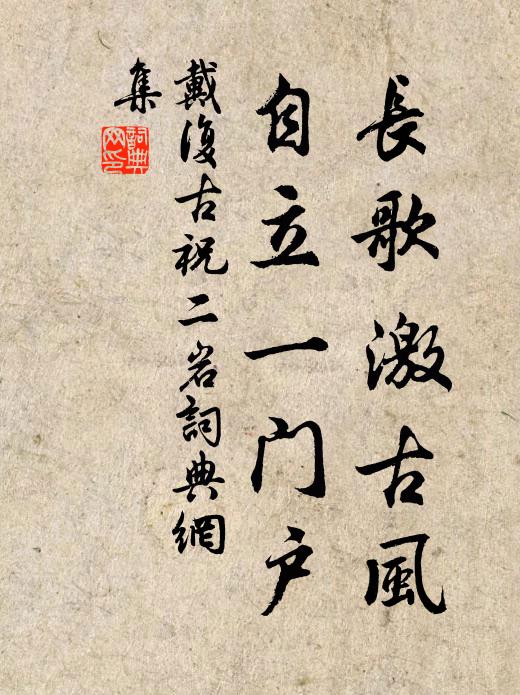 長歌激古風
自立一门户
戴復古祝二岩詞典網
集
詞典网印